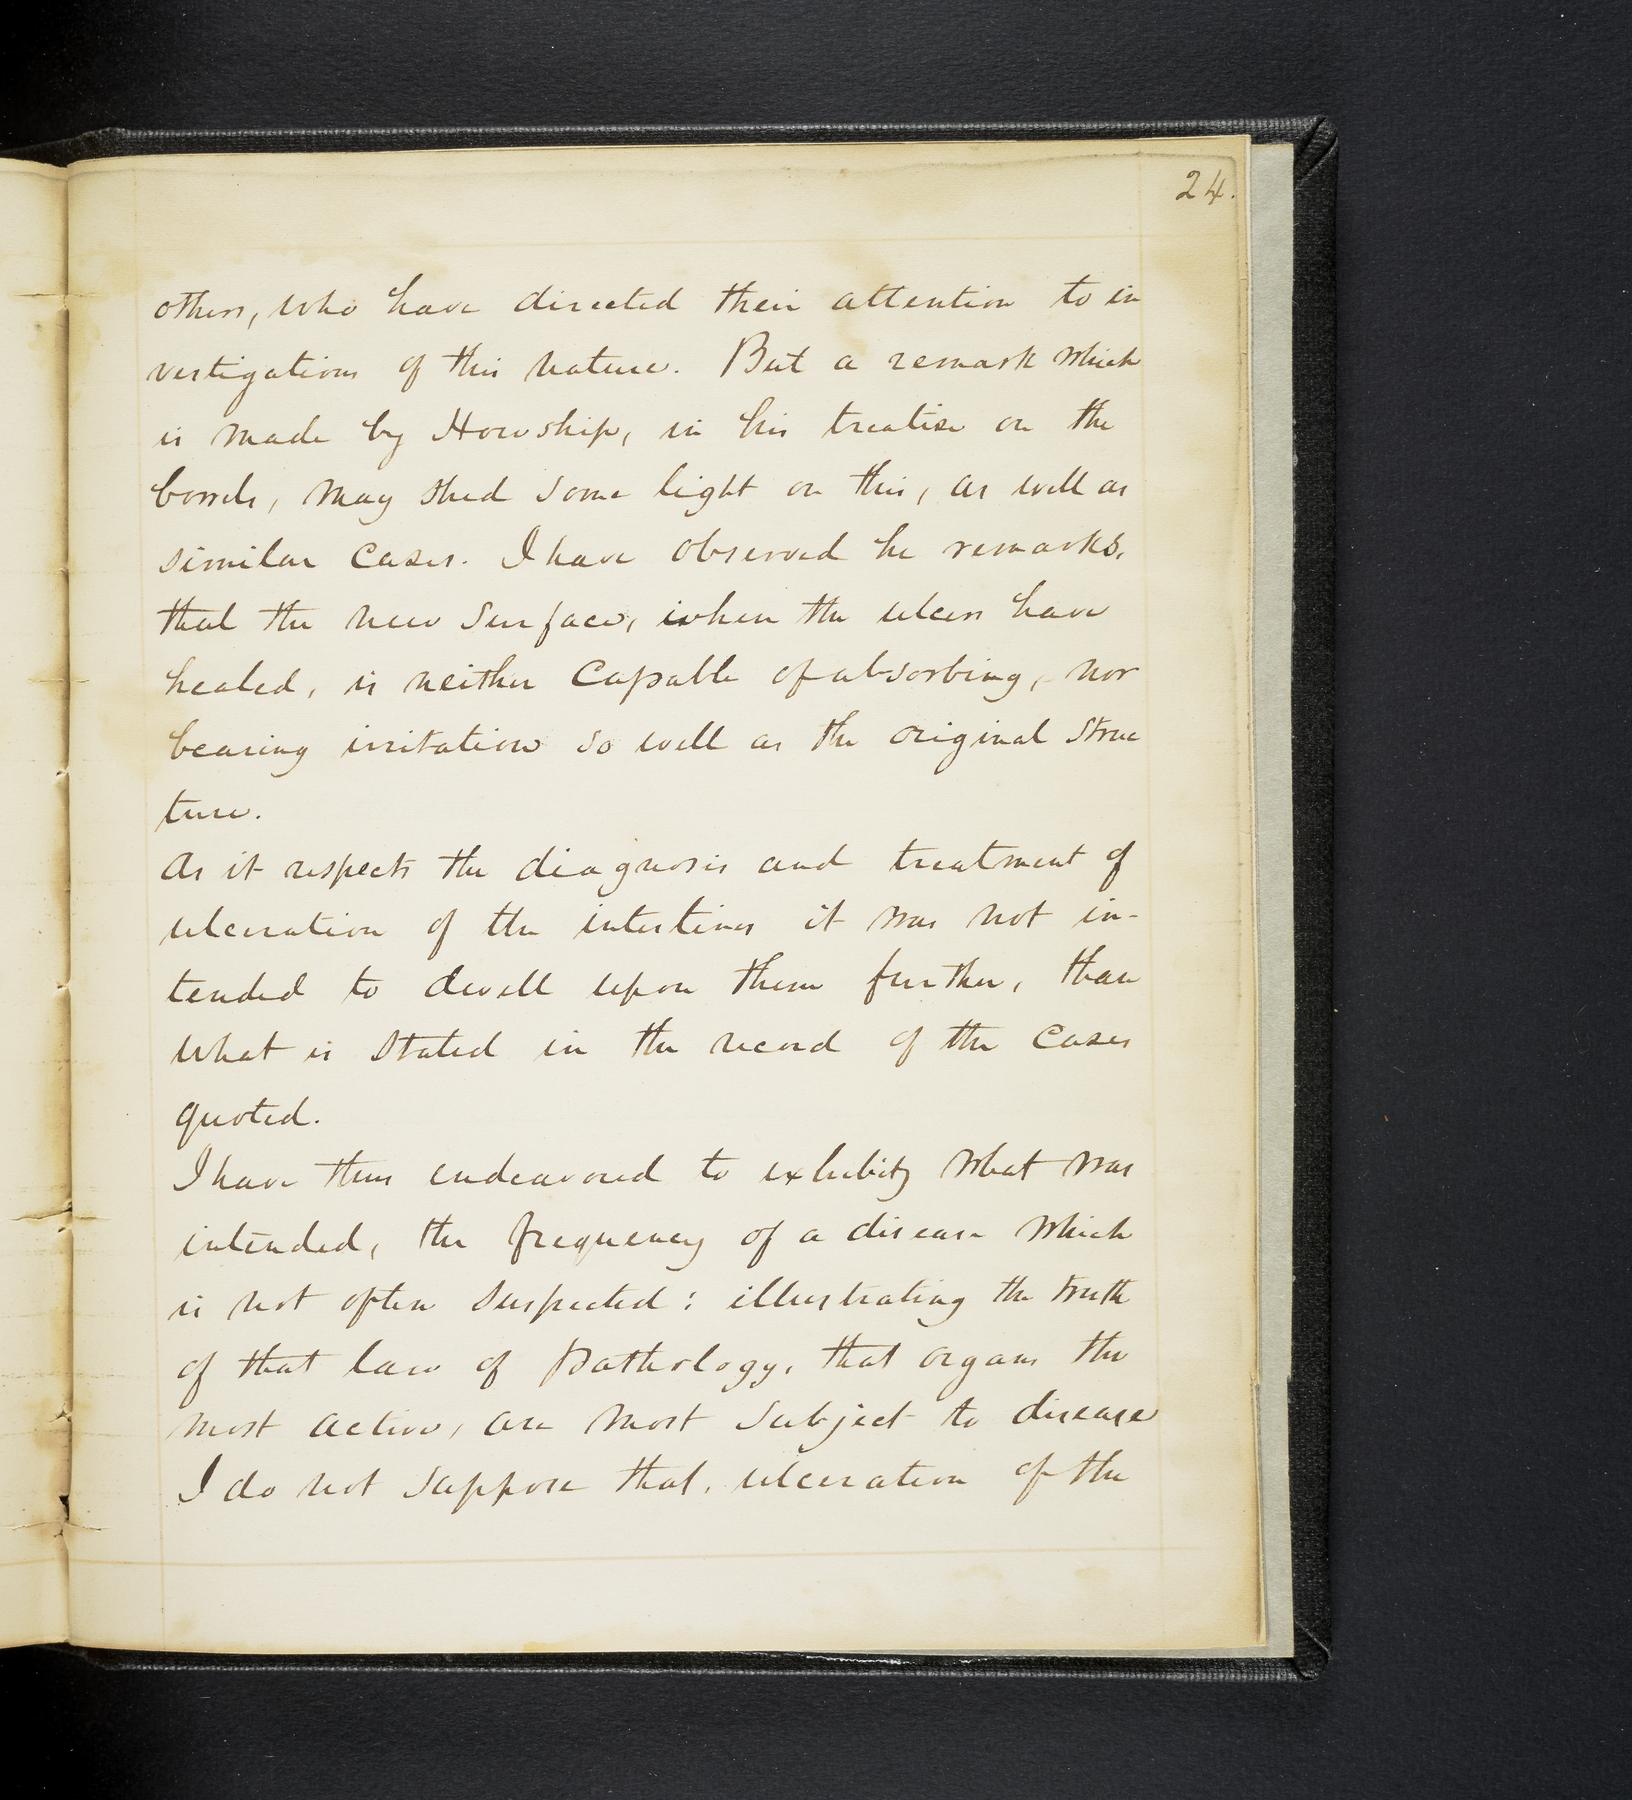 24.
others, who have directed their attention to in
vestigations of this nature. But a remark which
is made by Howship, in his treatise on the
bowels, may shed some light on this, as well as
similar cases. I have observed he remarks,
that the new surface, when the ulcers have
healed, is neither capable of absorbing, nor
bearing irritation so well as the original struc
ture.
As it respects the diagnosis and treatment of
ulceration of the intestines it was not in-
tended to dwell upon them further, than
what is stated in the record of the cases
quoted.
I have thus endeavored to exhibit, what was
intended, the frequency of a disease which
is not often suspected: illustrating the truth
of that law of Pathology, that organs the
most active, are most subject to disease
I do not suppose that, ulceration of the